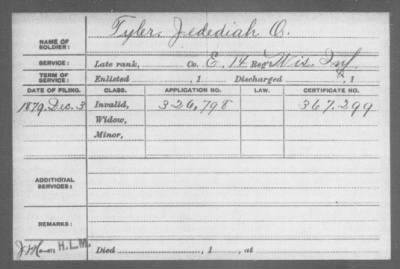 NAME OF SOLDIER: Tyler, Jedediah O.
SERVICE: Late rank, Co. E, 14 Reg't Wis. Inf.
TERM OF SERVICE: Enlisted , 1 Discharged , 1
DATE OF FILING. CLASS. APPLICATION NO. LAW. CERTIFICATE NO.
1879, Dec. 3 Invalid, 326,798 367,299
Widow,
Minor,
ADDITIONAL SERVICES:
REMARKS:
H.L.M. Died , 1 , at